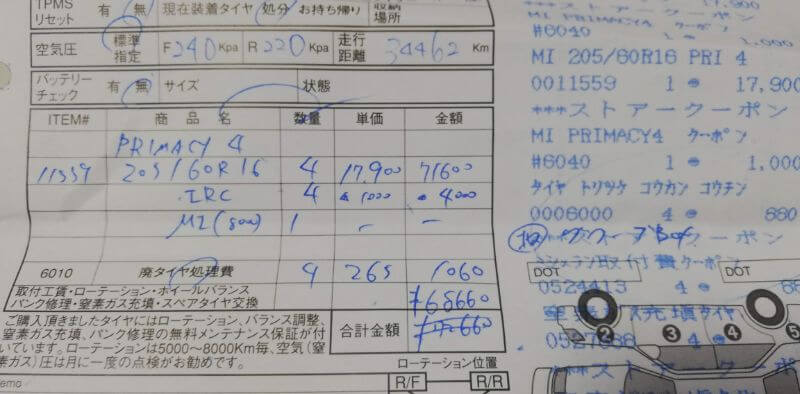 TPMS リセット 有 無 現在装着タイヤ 処分 お持ち帰り 収納場所
空気圧 標準 指定 F 240 Kpa R 220 Kpa 走行距離 34462 Km
バッテリーチェック 有 無 サイズ 状態
ITEM# 商品名 数量 単価 金額
PRIMACY 4
11559 205/60R16 4 17.900 71600
IRC 4 ▲1000 4000
MI 1 - -
6010 廃タイヤ処理費 4 265 1060
取付工賃・ローテーション・ホイールバランス
パンク修理・窒素ガス充填・スペアタイヤ交換
68660
ご購入頂きましたタイヤにはローテーション、バランス調整、
窒素ガス充填、パンク修理の無料メンテナンス保証が付
いています。ローテーションは5000～8000Km毎、空気(窒
素ガス)圧は月に一度の点検がお勧めです。
合計金額 660
ローテーション位置
R/F R/R
17,900
***ストアークーポン
MI PRIMACY4 クーポン
#6040 1 1,000
MI 205/60R16 PRI 4
0011559 1 17,900
***ストアークーポン
MI PRIMACY4 クーポン
#6040 1 1,000
タイヤ トリツケ コウカン コウチン
0006000 4 660
***ストアークーポン
ミシュラン取付費クーポン
DOT DOT
0524413 4
窒素ガス充填タイヤ
4
***ストアークーポン
2 3 4 5